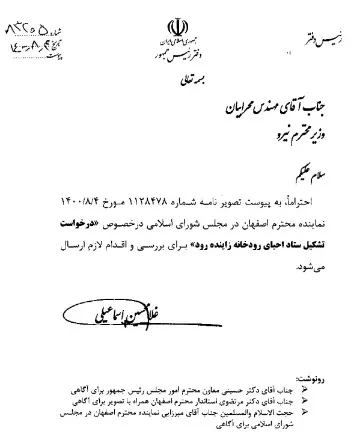 رئیس دفتر
جمهوری اسلامی ایران
دفتر رئیس جمهور
شماره ۸۳۲۰۵
تاریخ ۱۴۰۰/۸/۴
پیوست
بسمه تعالی
جناب آقای مهندس محرابیان
وزیر محترم نیرو
سلام علیکم
احتراماً، به پیوست تصویر نامه شماره ۱۱۲۸۴۷۸ مورخ ۱۴۰۰/۸/۴
نماینده محترم اصفهان در مجلس شورای اسلامی درخصوص «درخواست
تشکیل ستاد احیای رودخانه زاینده رود» برای بررسی و اقدام لازم ارسال
می‌شود.
غلامحسین اسماعیلی
رونوشت:
➢ جناب آقای دکتر حسینی معاون محترم امور مجلس رئیس جمهور برای آگاهی
➢ جناب آقای دکتر مرتضوی استاندار محترم اصفهان همراه با تصویر برای آگاهی
➢ حجت الاسلام والمسلمین جناب آقای میرزایی نماینده محترم اصفهان در مجلس
شورای اسلامی برای آگاهی